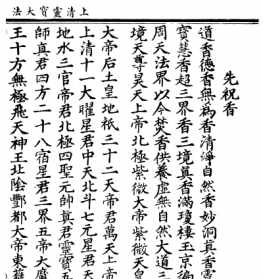 上清靈寶大法
先祝香
道香德香無為香清淨自然香妙洞真香
寶慧香超三界香三境真香滿瓊樓玉京
周天法界以今焚香供養虛無自然大道三
境天尊昊天上帝北極紫微大帝紫微天皇
大帝后土皇地祇三十二天帝君萬天上帝
上清十一大曜星君中天北斗七元星君
地水三官帝君北極四聖元帥真君靈寶五
師真君四方二十八宿星君三界五帝大魔
王十方無極飛天神王北陰酆都大帝東